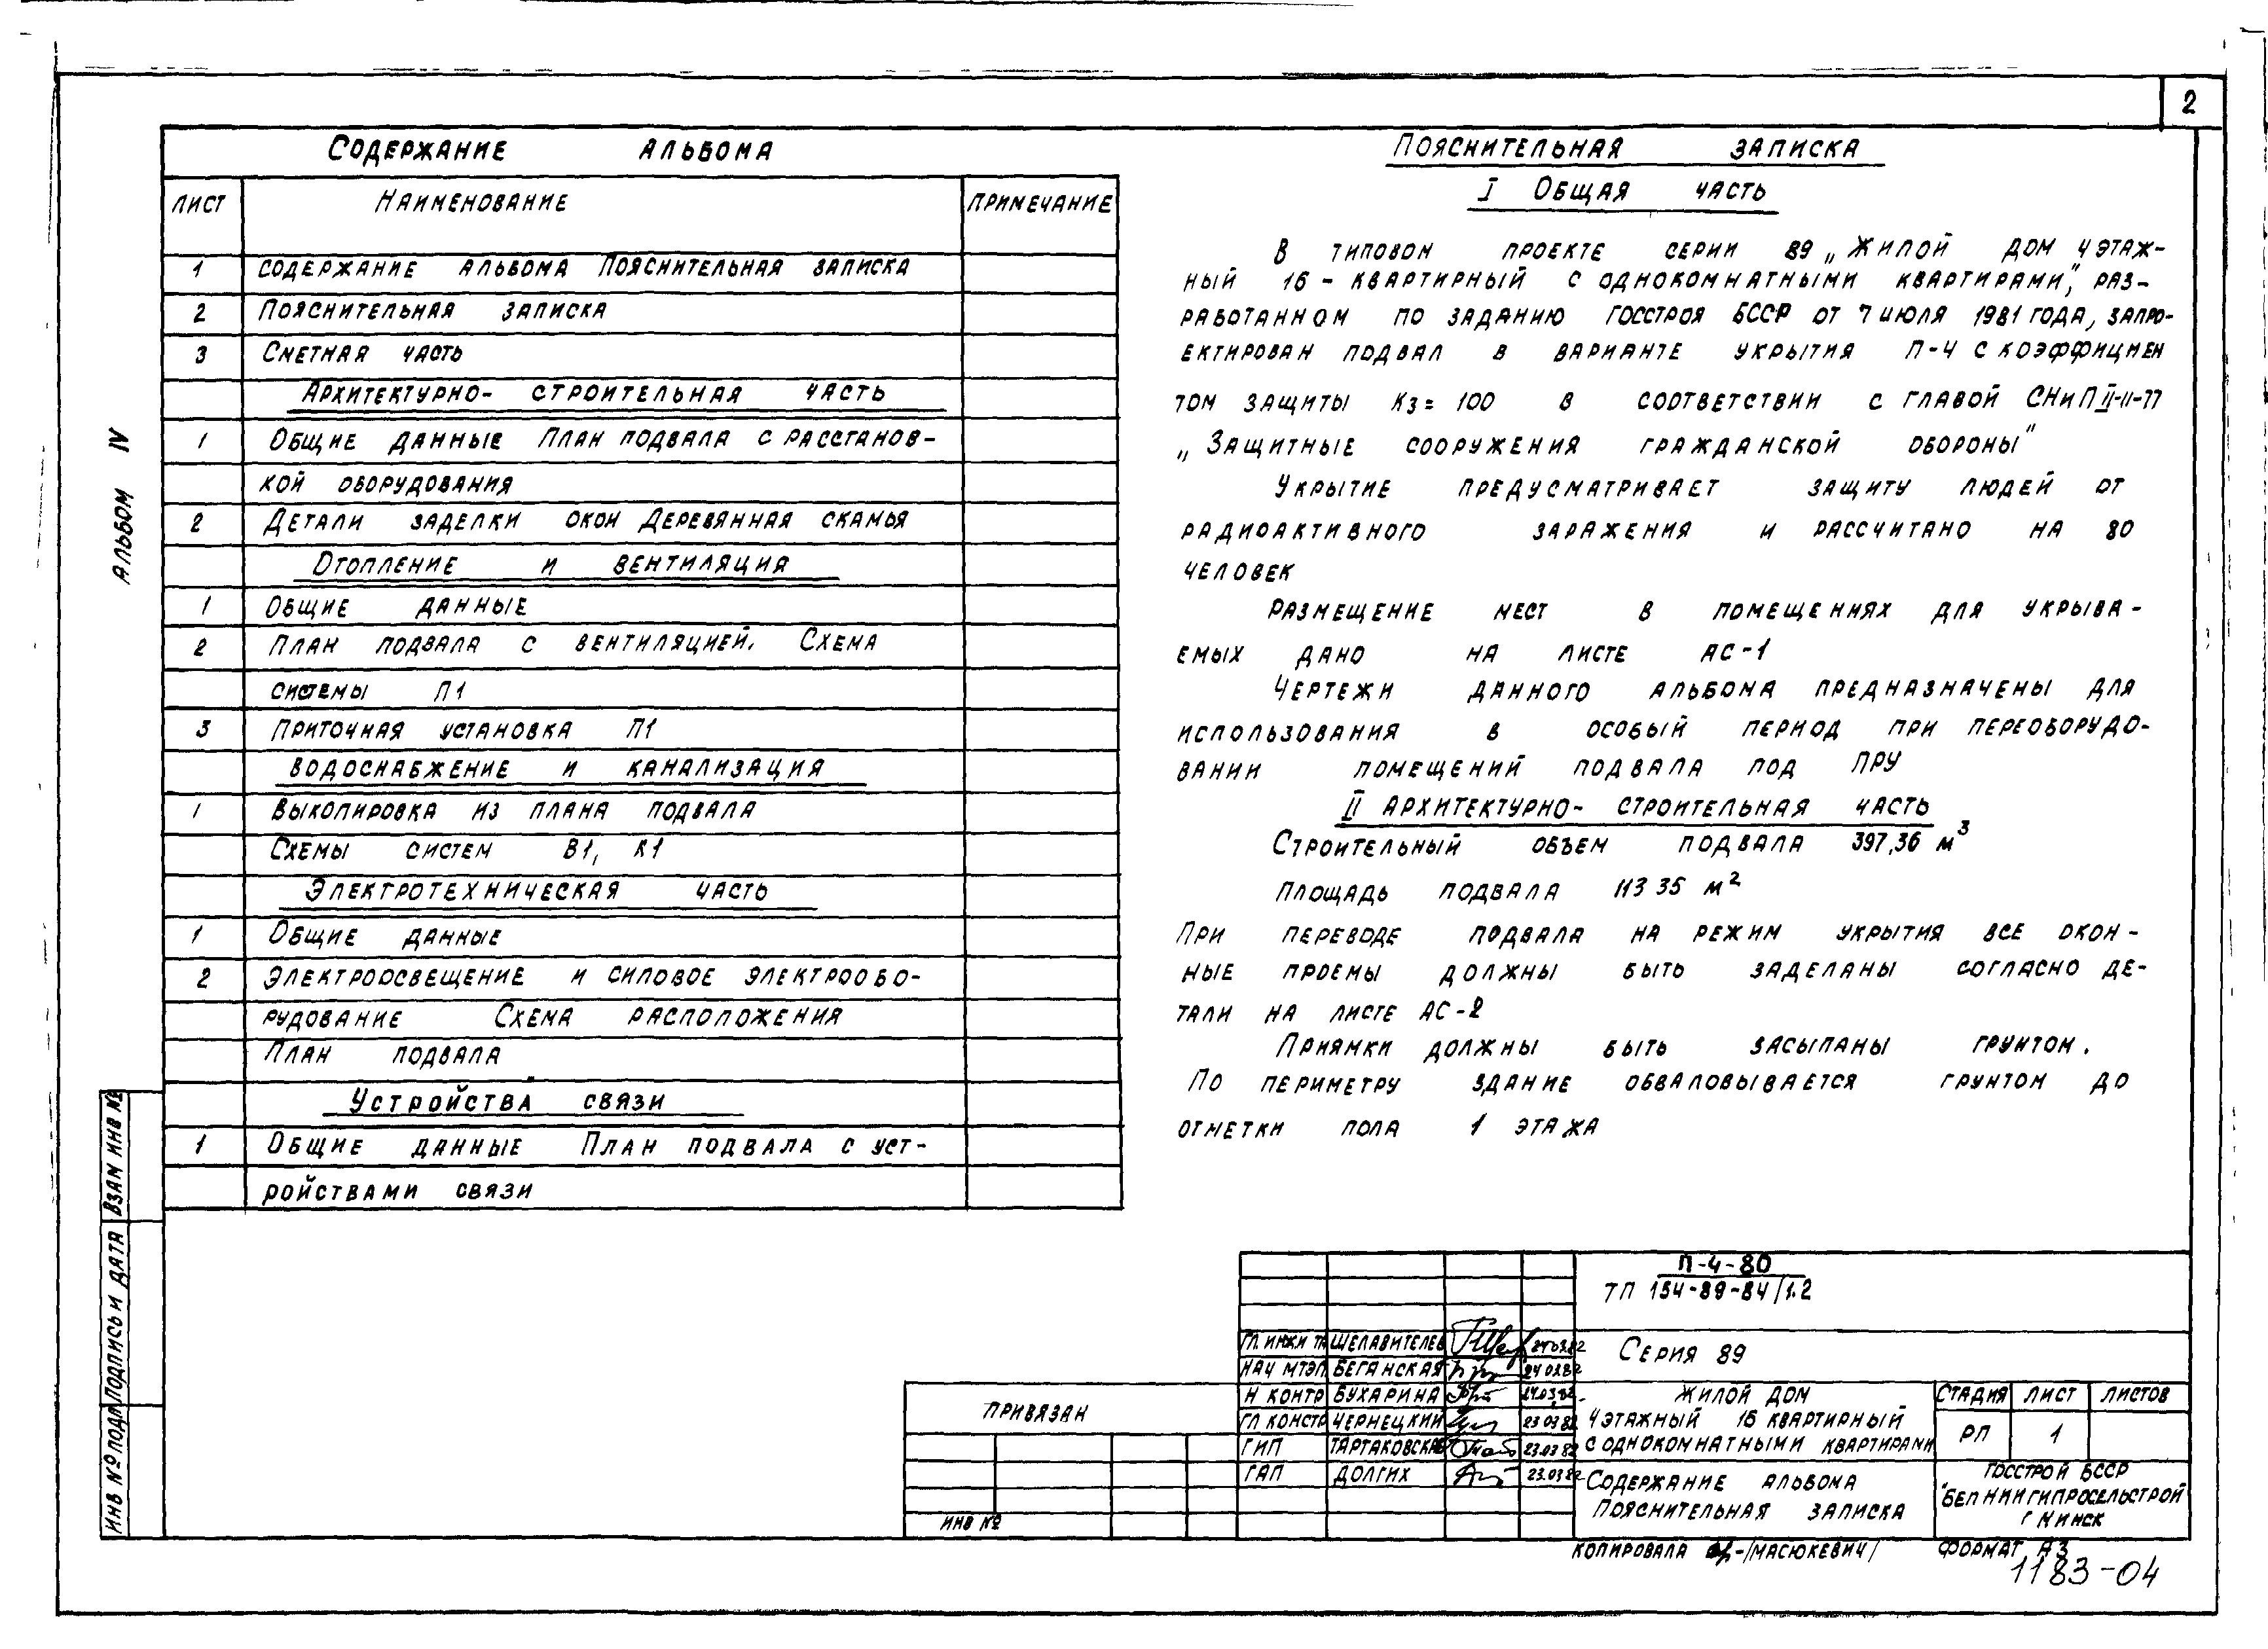 2
СОДЕРЖАНИЕ АЛЬБОМА
ЛИСТ НАИМЕНОВАНИЕ ПРИМЕЧАНИЕ
1 СОДЕРЖАНИЕ АЛЬБОМА ПОЯСНИТЕЛЬНАЯ ЗАПИСКА
2 ПОЯСНИТЕЛЬНАЯ ЗАПИСКА
3 СМЕТНАЯ ЧАСТЬ
АРХИТЕКТУРНО- СТРОИТЕЛЬНАЯ ЧАСТЬ
1 ОБЩИЕ ДАННЫЕ ПЛАН ПОДВАЛА С РАССТАНОВ-
КОЙ ОБОРУДОВАНИЯ
2 ДЕТАЛИ ЗАДЕЛКИ ОКОН ДЕРЕВЯННАЯ СКАМЬЯ
ОТОПЛЕНИЕ И ВЕНТИЛЯЦИЯ
1 ОБЩИЕ ДАННЫЕ
2 ПЛАН ПОДВАЛА С ВЕНТИЛЯЦИЕЙ. СХЕМА
СИСТЕМЫ П1
3 ПРИТОЧНАЯ УСТАНОВКА П1
ВОДОСНАБЖЕНИЕ И КАНАЛИЗАЦИЯ
1 ВЫКОПИРОВКА ИЗ ПЛАНА ПОДВАЛА
СХЕМЫ СИСТЕМ В1, К1
ЭЛЕКТРОТЕХНИЧЕСКАЯ ЧАСТЬ
1 ОБЩИЕ ДАННЫЕ
2 ЭЛЕКТРООСВЕЩЕНИЕ И СИЛОВОЕ ЭЛЕКТРООБО-
РУДОВАНИЕ СХЕМА РАСПОЛОЖЕНИЯ
ПЛАН ПОДВАЛА
УСТРОЙСТВА СВЯЗИ
1 ОБЩИЕ ДАННЫЕ ПЛАН ПОДВАЛА С УСТ-
РОЙСТВАМИ СВЯЗИ
АЛЬБОМ IV
ВЗАМ ИНВ №
ПОДПИСЬ И ДАТА
ИНВ № ПОДЛ
ПОЯСНИТЕЛЬНАЯ ЗАПИСКА
I ОБЩАЯ ЧАСТЬ
В ТИПОВОМ ПРОЕКТЕ СЕРИИ 89 „ЖИЛОЙ ДОМ 4 ЭТАЖ-
НЫЙ 16 - КВАРТИРНЫЙ С ОДНОКОМНАТНЫМИ КВАРТИРАМИ", РАЗ-
РАБОТАННОМ ПО ЗАДАНИЮ ГОССТРОЯ БССР ОТ 7 ИЮЛЯ 1981 ГОДА, ЗАПРО-
ЕКТИРОВАН ПОДВАЛ В ВАРИАНТЕ УКРЫТИЯ П-4 С КОЭФФИЦИЕН
ТОМ ЗАЩИТЫ КЗ = 100 В СООТВЕТСТВИИ С ГЛАВОЙ СНиП II-11-77
„ЗАЩИТНЫЕ СООРУЖЕНИЯ ГРАЖДАНСКОЙ ОБОРОНЫ"
УКРЫТИЕ ПРЕДУСМАТРИВАЕТ ЗАЩИТУ ЛЮДЕЙ ОТ
РАДИОАКТИВНОГО ЗАРАЖЕНИЯ И РАССЧИТАНО НА 80
ЧЕЛОВЕК
РАЗМЕЩЕНИЕ МЕСТ В ПОМЕЩЕНИЯХ ДЛЯ УКРЫВА-
ЕМЫХ ДАНО НА ЛИСТЕ АС-1
ЧЕРТЕЖИ ДАННОГО АЛЬБОМА ПРЕДНАЗНАЧЕНЫ ДЛЯ
ИСПОЛЬЗОВАНИЯ В ОСОБЫЙ ПЕРИОД ПРИ ПЕРЕОБОРУДО-
ВАНИИ ПОМЕЩЕНИЙ ПОДВАЛА ПОД ПРУ
II АРХИТЕКТУРНО- СТРОИТЕЛЬНАЯ ЧАСТЬ
СТРОИТЕЛЬНЫЙ ОБЪЕМ ПОДВАЛА 397,36 м³
ПЛОЩАДЬ ПОДВАЛА 113 35 м²
ПРИ ПЕРЕВОДЕ ПОДВАЛА НА РЕЖИМ УКРЫТИЯ ВСЕ ОКОН -
НЫЕ ПРОЕМЫ ДОЛЖНЫ БЫТЬ ЗАДЕЛАНЫ СОГЛАСНО ДЕ-
ТАЛИ НА ЛИСТЕ АС-2
ПРИЯМКИ ДОЛЖНЫ БЫТЬ ЗАСЫПАНЫ ГРУНТОМ.
ПО ПЕРИМЕТРУ ЗДАНИЕ ОБВАЛОВЫВАЕТСЯ ГРУНТОМ ДО
ОТМЕТКИ ПОЛА 1 ЭТАЖА
П-4-80
ТП 154-89-84/1.2
ГЛ. ИНЖ ИНТА ШЕЛАВИТЕЛЕВ 24.03.82
НАЧ МТЭП БЕГАНСКАЯ 24 03.82
Н КОНТР БУХАРИНА 24.03.82
ГЛ КОНСТР ЧЕРНЕЦКИЙ 23 03 82
ГИП ТАРТАКОВСКАЯ 23.03 82
ГАП ДОЛГИХ 23.03 82
СЕРИЯ 89
ЖИЛОЙ ДОМ
4 ЭТАЖНЫЙ 16 КВАРТИРНЫЙ
С ОДНОКОМНАТНЫМИ КВАРТИРАМИ
СТАДИЯ ЛИСТ ЛИСТОВ
РП 1
СОДЕРЖАНИЕ АЛЬБОМА
ПОЯСНИТЕЛЬНАЯ ЗАПИСКА
ГОССТРОЙ БССР
"БЕЛНИИГИПРОСЕЛЬСТРОЙ
Г МИНСК
ПРИВЯЗАН
ИНВ №
КОПИРОВАЛА /МАСЮКЕВИЧ/ ФОРМАТ А3
1183-04